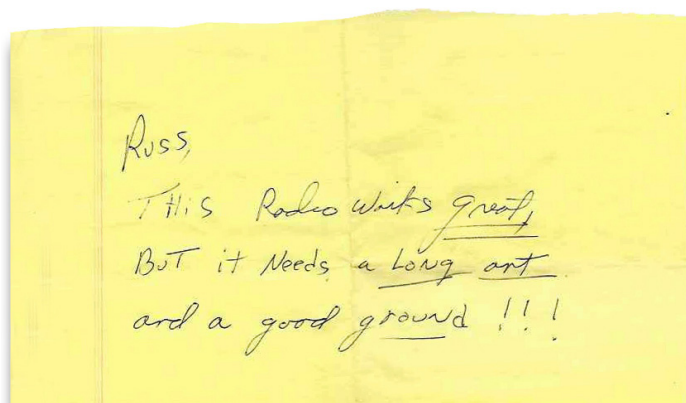 Russ,
THis Radio works great,
BuT it Needs a Long ant
and a good ground !!!